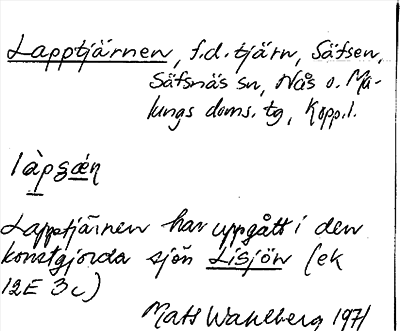 Lapptjärnen, f.d. tjärn, Säfsen,
Säfsnäs sn, Nås o. Ma-
lungs doms. tg, Kopp.l.
làpʂǽṇ
Lapptjärnen har uppgått i den
konstgjorda sjön Lisjön (ek
12E 3c)
Mats Wahlberg 1971